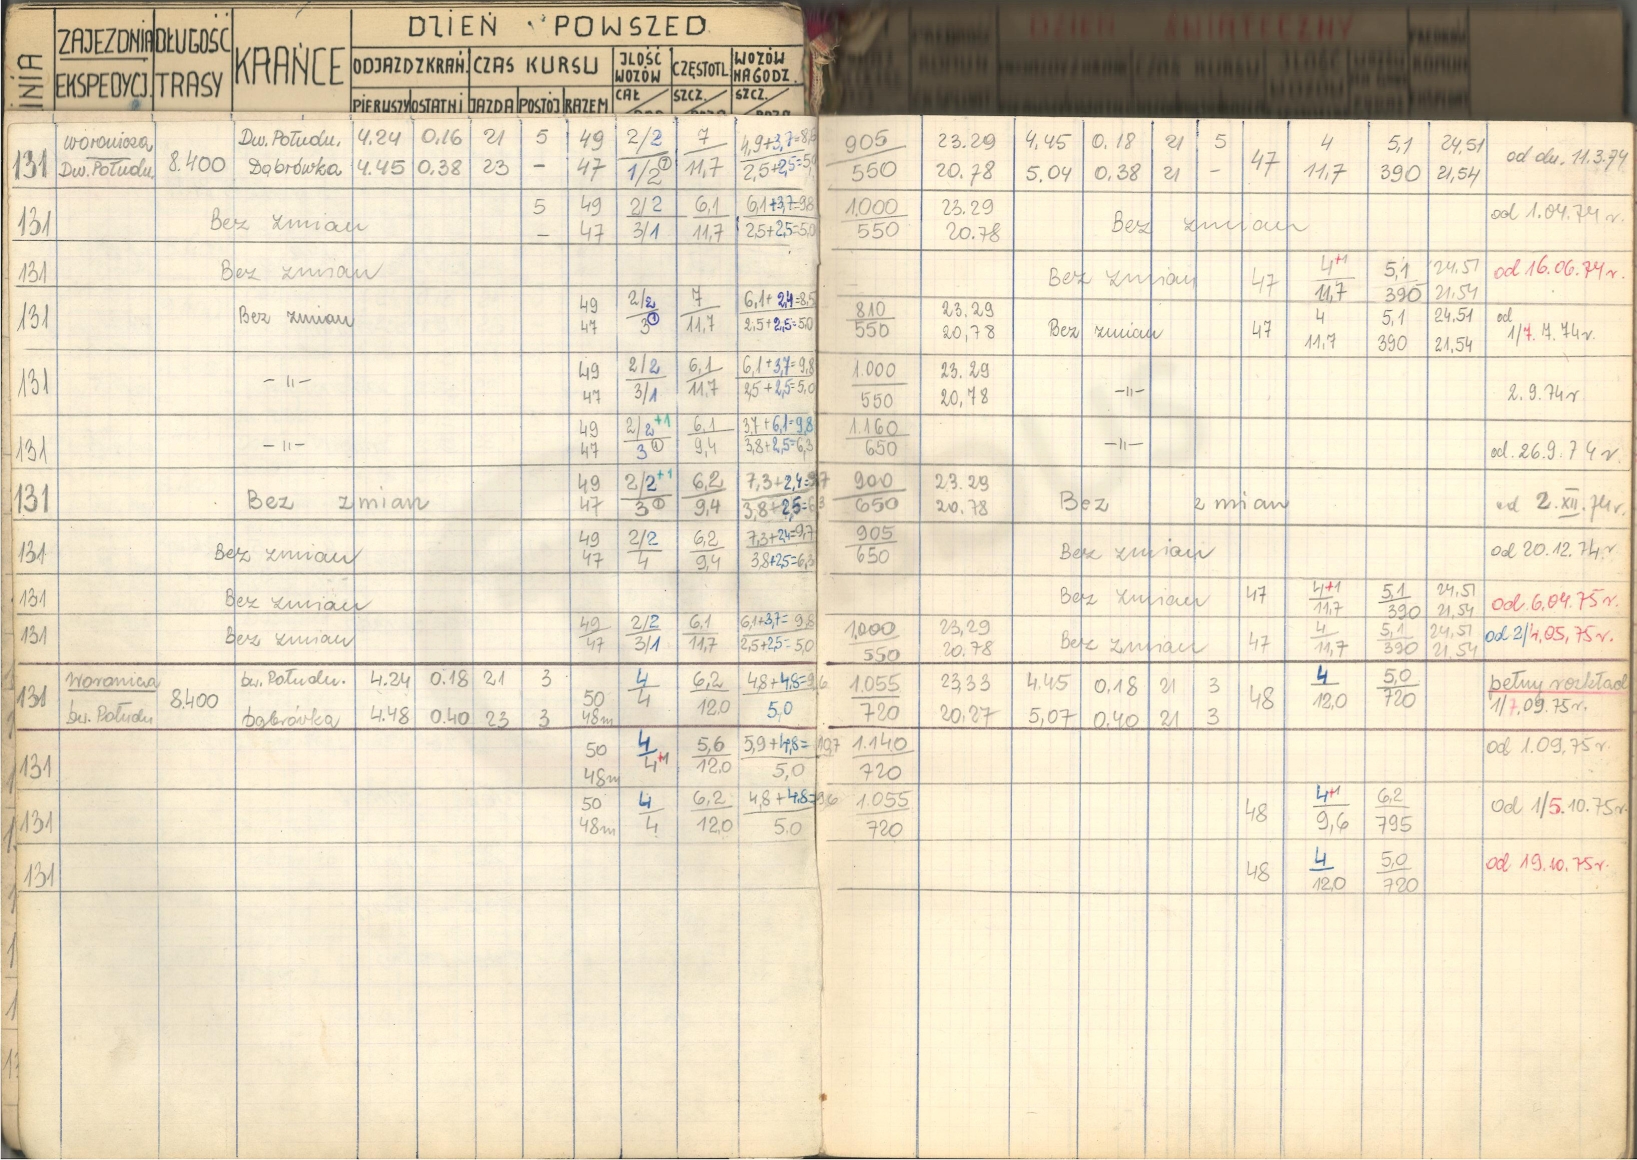 LINIA ZAJEZDNIA EKSPEDYCJ. DŁUGOŚĆ TRASY KRAŃCE DZIEŃ POWSZED
ODJAZD Z KRAŃ. CZAS KURSU ILOŚĆ WOZÓW CZĘSTOTL WOZÓW NA GODZ.
PIERWSZY OSTATNI JAZDA POSTÓJ RAZEM CAŁ SZCZ. SZCZ.
DZIEŃ ŚWIĄTECZNY
woronicza Dw. Połudn. 4.24 0.16 21 5 49 2/2 7 4,9+3,7=8,5 905 23.29 4.45 0.18 21 5 4 5,1 24,51
131 8.400 47 od dn. 11.3.74
Dw. Połudn. Dąbrówka 4.45 0.38 23 – 47 1/2① 11,7 2,5+2,5=5,0 550 20.78 5.04 0.38 21 – 11,7 390 21,54
5 49 2/2 6,1 6,1+3,7=9,8 1.000 23.29
131 Bez zmian Bez zmian od 1.04.74 r.
– 47 3/1 11,7 2,5+2,5=5,0 550 20.78
131 Bez zmian Bez zmian 47 4+1 5,1 24,51 od 16.06.74 r.
11,7 390 21,54
49 2/2 7 6,1+2,4=8,5 810 23.29 4 5,1 24.51 od
131 Bez zmian Bez zmian 47 1/7. 7. 74 r.
47 3① 11,7 2,5+2,5=5,0 550 20,78 11,7 390 21,54
49 2/2 6,1 6,1+3,7=9,8 1.000 23.29
131 – 11 – – 11 – 2.9.74 r
47 3/1 11,7 2,5+2,5=5,0 550 20,78
49 2/2+1 6,1 3,7+6,1=9,8 1.160
131 – 11 – – 11 – od. 26.9.74 r.
47 3① 9,4 3,8+2,5=6,3 650
49 2/2+1 6,2 7,3+2,4=9,7 900 23.29
131 Bez zmian Bez zmian od 2.XII.74 r.
47 3① 9,4 3,8+2,5=6,3 650 20.78
49 2/2 6,2 7,3+2,4=9,7 905
131 Bez zmian Bez zmian od 20.12.74. r
47 4 9,4 3,8+2,5=6,3 650
131 Bez zmian Bez zmian 47 4+1 5,1 24,51 od. 6.04.75 r.
11,7 390 21,54
49 2/2 6,1 6,1+3,7=9,8 1.000 23,29 4 5,1 24,51
131 Bez zmian Bez zmian 47 od 2/4,05,75 r.
47 3/1 11,7 2,5+2,5=5,0 550 20.78 11,7 390 21,54
Woronicza Dw. Połudn. 4.24 0.18 21 3 50 4 6,2 4,8+4,8=9,6 1.055 23,33 4.45 0,18 21 3 4 5,0 pełny rozkład
131 8.400 48 1/7,09.75 r.
Dw. Połudn Dąbrówka 4.48 0.40 23 3 48m 4 12.0 5,0 720 20,27 5,07 0.40 21 3 12,0 720
50 4 5,6 5,9+4,8=10,7 1.140 od 1.09.75 r.
131
48m 4+1 12,0 5,0 720
50 4 6,2 4,8+4,8=9,6 1.055 4+1 6,2
131 48 od 1/5.10.75 r.
48m 4 12,0 5.0 720 9,6 795
131 48 4 5,0 od 19.10.75 r.
12,0 720